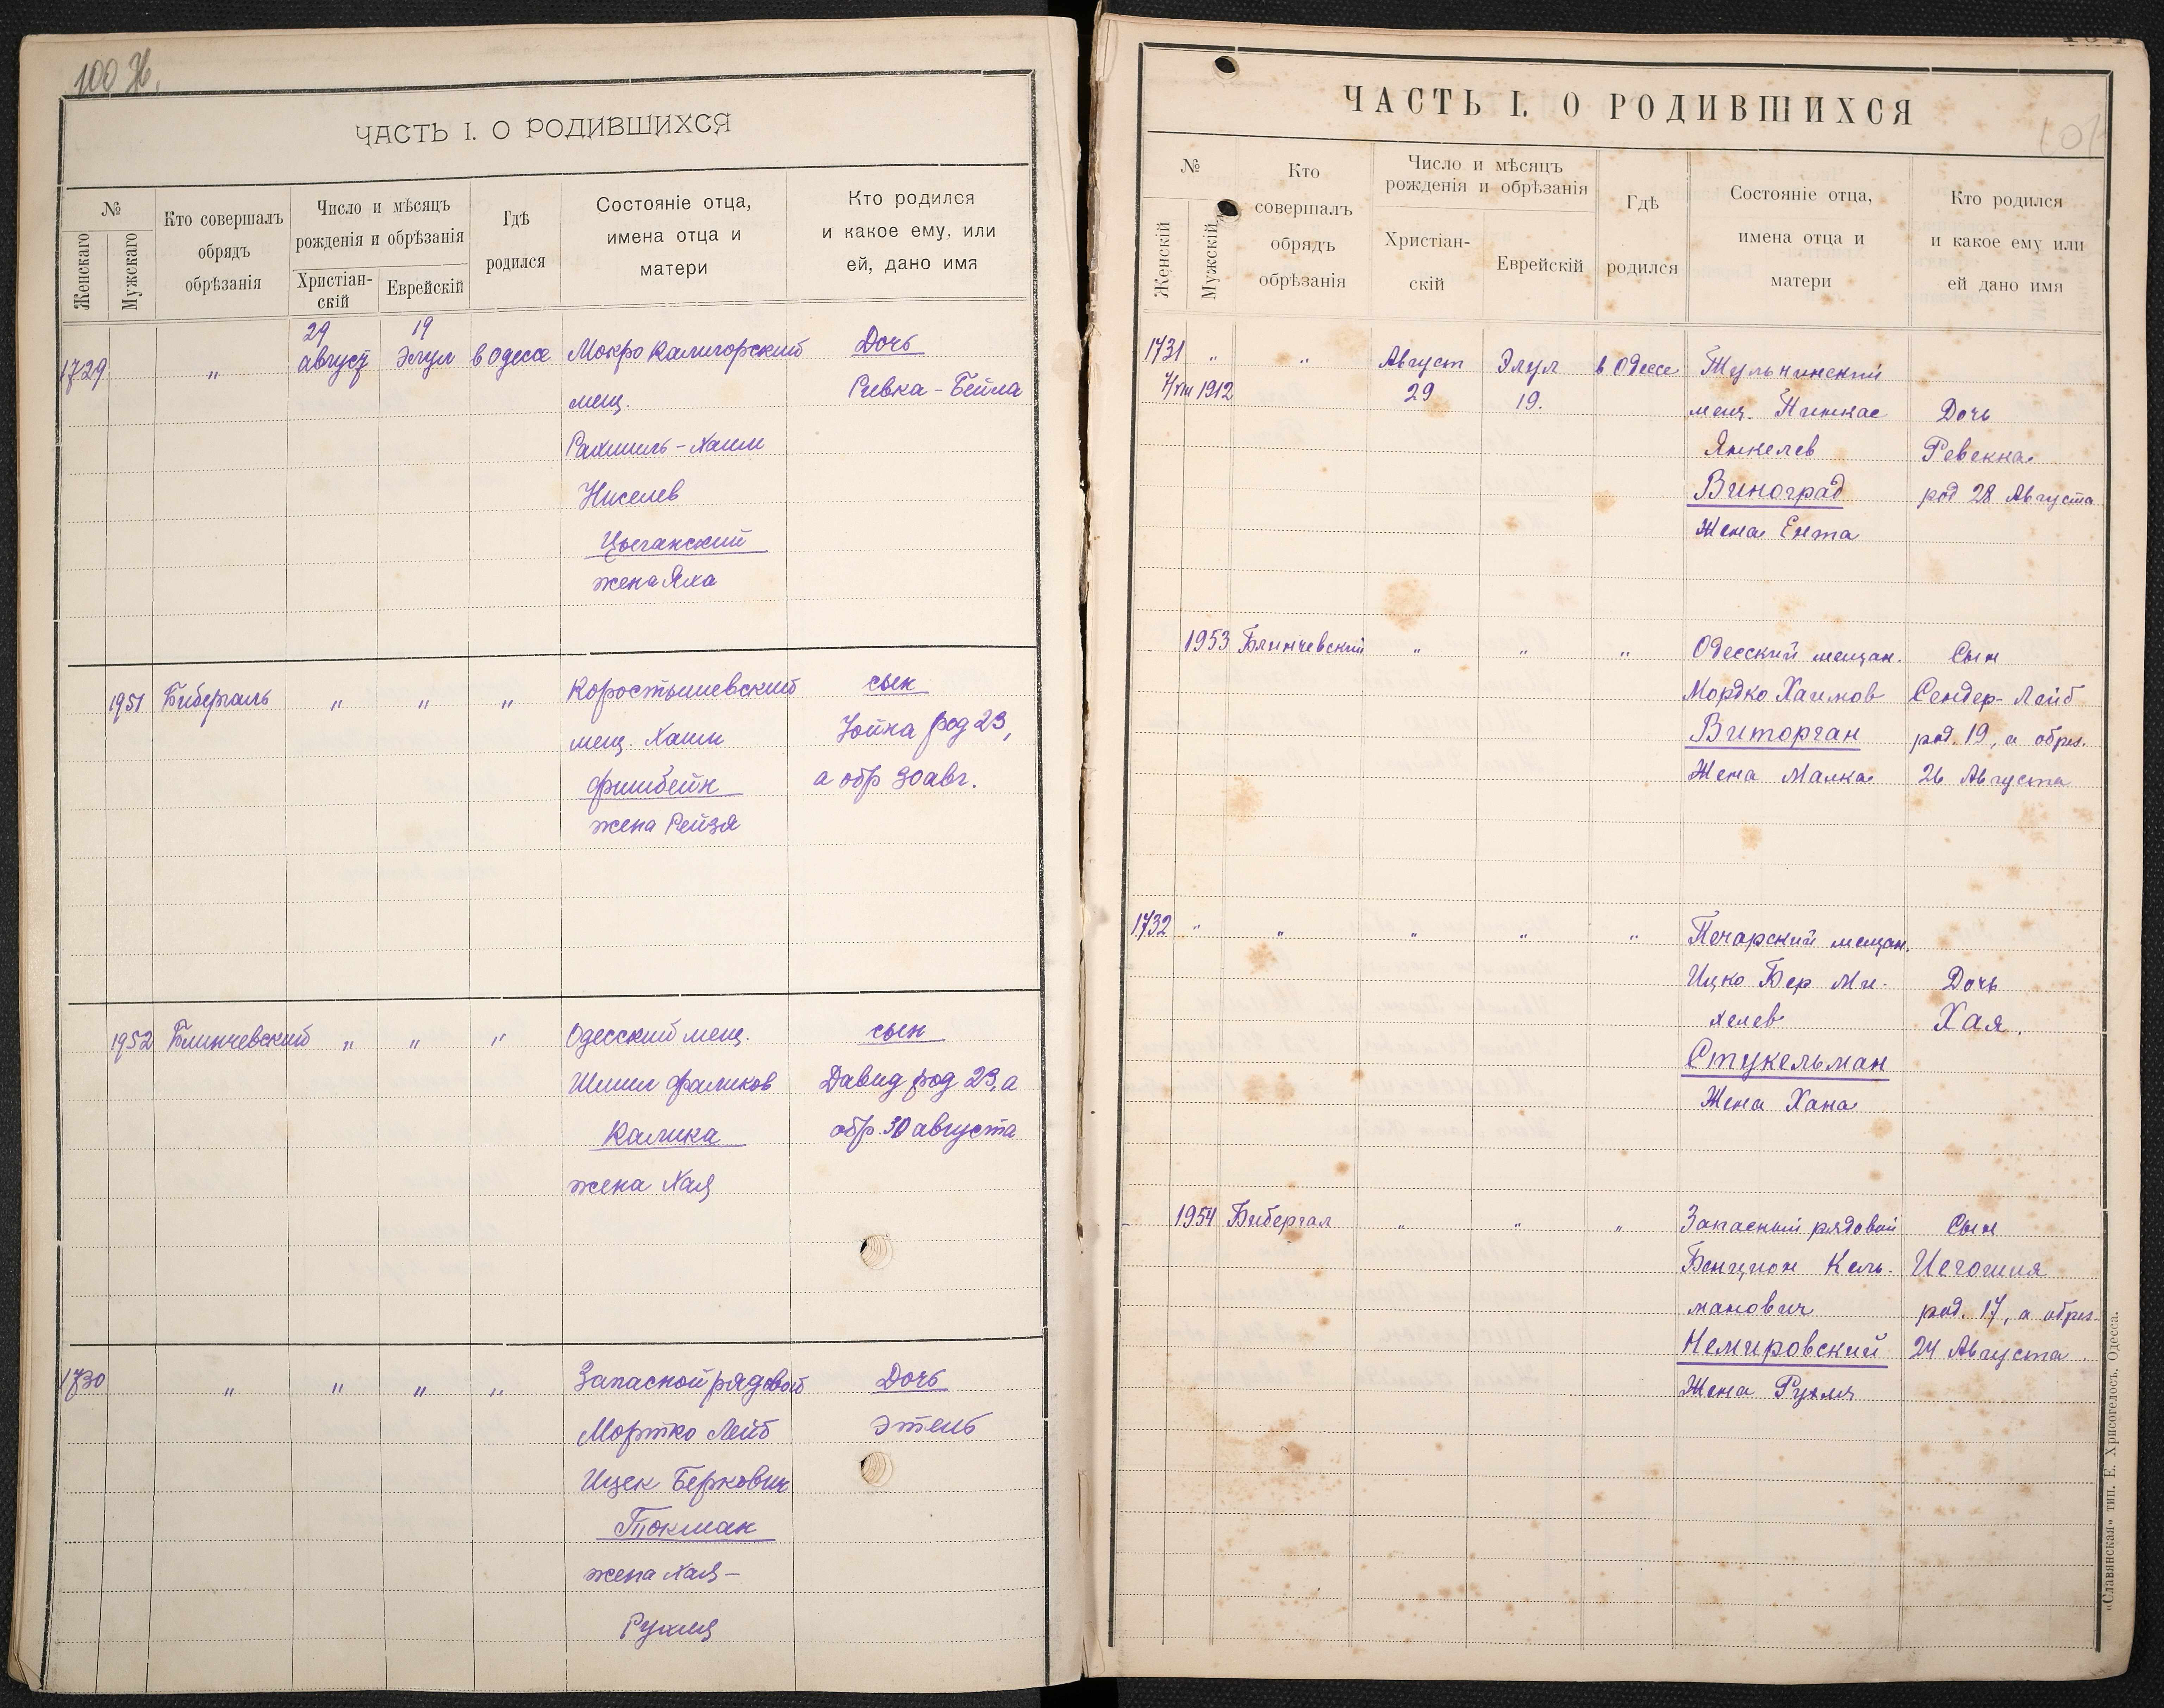 100 Ж.
ЧАСТЬ I. О РОДИВШИХСЯ
№
Женскаго
Мужскаго
Кто совершалъ
обрядъ
обрѣзанія
Число и мѣсяцъ
рожденія и обрѣзанія
Христіан-
скій
Еврейскій
Гдѣ
родился
Состояніе отца,
имена отца и
матери
Кто родился
и какое ему, или
ей, дано имя
29 19
1729 " август Элул в Одессе Мокро Калигорский Дочь
мещ. Ривка - Бейла
Рахмиль - Хаим
Ниселев
Цыганский
жена Яха
1951 Бибергаль " " " Коростышевский сын
мещ. Хаим Йойна род 23,
Фишбейн а обр 30 авг.
жена Рейзя
1952 Блинчевский " " " Одесский мещ. сын
Шмил Фаликов Давид род 23, а
Калика обр. 30 августа
жена Хая
1730 " " " " Запасной рядовой Дочь
Мортко Лейб Этель
Ицек Беркович
Токман
жена Хая -
Рухля
ЧАСТЬ I. О РОДИВШИХСЯ
101
№
Женскій
Мужскій
Кто
совершалъ
обрядъ
обрѣзанія
Число и мѣсяцъ
рожденія и обрѣзанія
Христіан-
скій
Еврейскій
Гдѣ
родился
Состояніе отца,
имена отца и
матери
Кто родился
и какое ему или
ей дано имя
1731 " " Август Элул в Одессе Тульчинский
1912 29 19. мещ. Пинкас Дочь
Янкелев Ревекка
Виноград род 28 Августа
Жена Ента
1953 Блинчевский " " " Одесский мещан. Сын
Мордко Хаимов Сендер-Лейб
Виторган род. 19, а обрез.
Жена Малка 26 Августа
1732 " " " " " Печарский мещан.
Ицко Бер Ми- Дочь
хелев Хая.
Стукельман
Жена Хана
1954 Бибергал " " " Запасный рядовой Сын
Бенцион Кель- Иегошия
манович род. 17, а обрез.
Немировский 24 Августа.
Жена Рухля
«Славянская» тип. Е. Хрисогелосъ, Одесса.